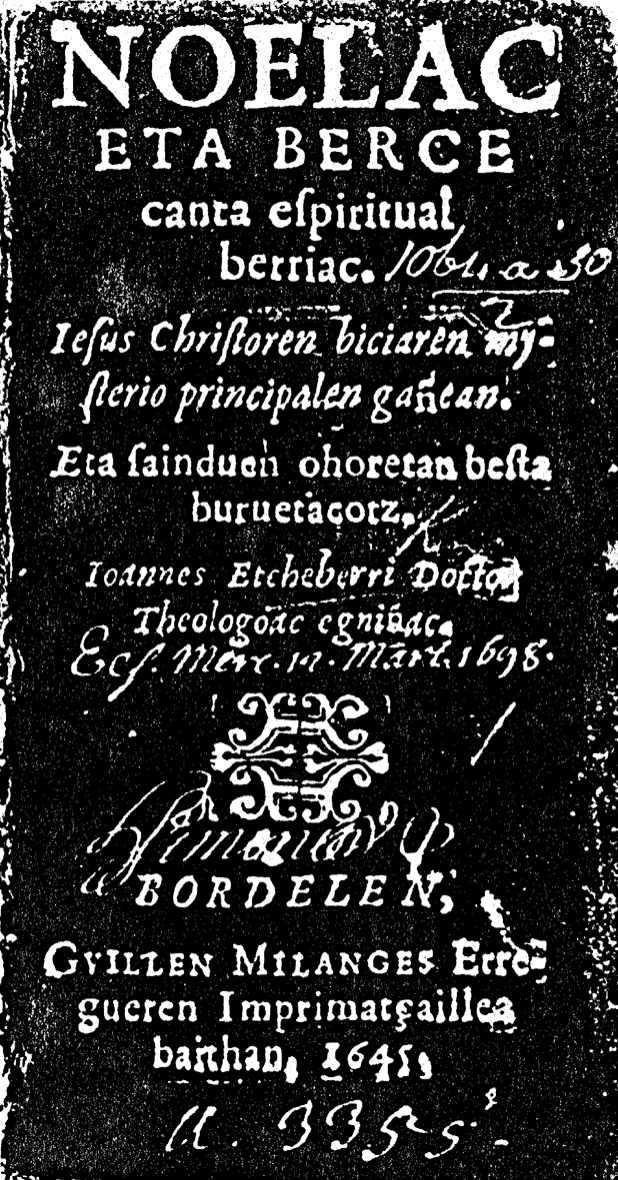 NOELAC
ETA BERCE
canta eſpiritual
berriac.
Ieſus Chriſtoren biciaren my-
ſterio principalen gañean.
Eta ſainduen ohoretan beſta
buruetacotz.
Ioannes Etcheberri Doctor
Theologoac egniñac.
Mart. 1698.
BORDELEN,
GVILLEN MILANGES Erre-
gueren Imprimatçaillea
baithan, 1645,
3355.